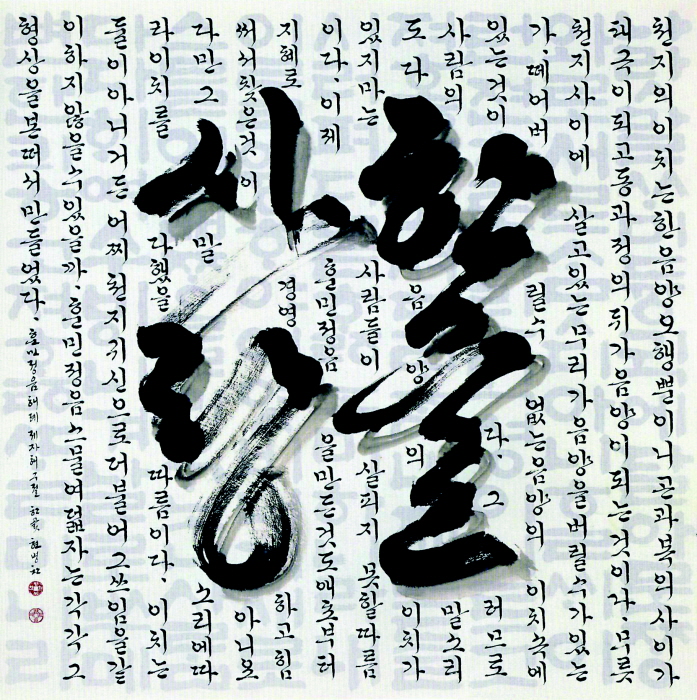 한글
사랑
천지의 이치는 한 음양오행뿐이니 곤과 복의 사이가
태극이 되고 동과 정의 뒤가 음양이 되는 것이다. 무릇
천지 사이에 살고있는 무리가 음양을 버릴 수가 있는
가. 떼어버릴수 없는 음양의 이치속에
있는것이다. 그러므로
사람의 말소리
도 다 음양의 이치가
있지마는 사람들이 살피지 못할따름
이다. 이제 훈민정음을 만든것도 애초부터
지혜로 경영하고 힘
써서 찾은것이 아니오
다만 그 말소리에 따
라 이치를 다했을 따름이다. 이치는
둘이 아니거든 어찌 천지귀신으로 더불어 그 쓰임을 같
이하지 않을 수 있을까. 훈민정음 스물여덟자는 각각 그
형상을 본떠서 만들었다. 훈민정음해례 제자해 구절